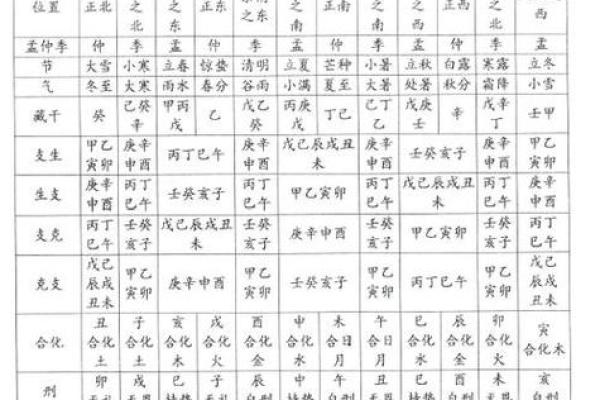 位置 正北 之北 之东 正东 之东 之南 正南 之南 之西 正西 之北 西
孟仲季 仲 季 孟 仲 季 孟 仲 季 孟 仲 季 孟
节 大雪 小寒 立春 惊蛰 清明 立夏 芒种 小暑 立秋 白露 寒露 立冬
气 冬至 大寒 雨水 春分 谷雨 小满 夏至 大暑 处暑 秋分 霜降 小雪
藏干 癸 己癸辛 甲丙戊 乙 戊乙癸 丙庚戊 丁己 己丁乙 戊庚壬 辛 戊辛丁 壬甲
支生 甲乙寅卯 庚辛申酉 丙丁巳午 庚辛申酉 戊己辰戌丑未 庚辛申酉 壬癸亥子 庚辛申酉 甲乙寅卯
生支 庚辛申酉 丙丁巳午 壬癸亥子 丙丁巳午 甲乙寅卯 丙丁巳午 戊己辰戌丑未 丙丁巳午 庚辛申酉
支克 丙丁巳午 壬癸亥子 戊己辰戌丑未 壬癸亥子 庚辛申酉 壬癸亥子 甲乙寅卯 壬癸亥子 丙丁巳午
克支 戊己辰戌丑未 甲乙寅卯 庚辛申酉 甲乙寅卯 壬癸亥子 甲乙寅卯 丙丁巳午 甲乙寅卯 戊己辰戌丑未
合化 丑合化土 子合化土 亥合化木 戌合化火 酉合化金 申合化水 未合日月 午合日月 巳合化水 辰合化金 卯合化火 寅合化木
刑 卯 戌 巳 子 辰 申 午 丑 巳 酉 未 亥